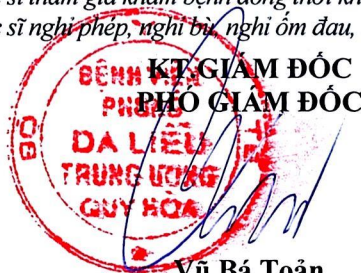 sĩ tham gia khám bệnh đồng thời
sĩ nghỉ phép, nghỉ bù, nghỉ ốm đau,
KT.GIÁM ĐỐC
PHÓ GIÁM ĐỐC
BỆNH VIỆN
PHONG
DA LIỄU
TRUNG ƯƠNG
QUY HÒA
Vũ Bá Toản